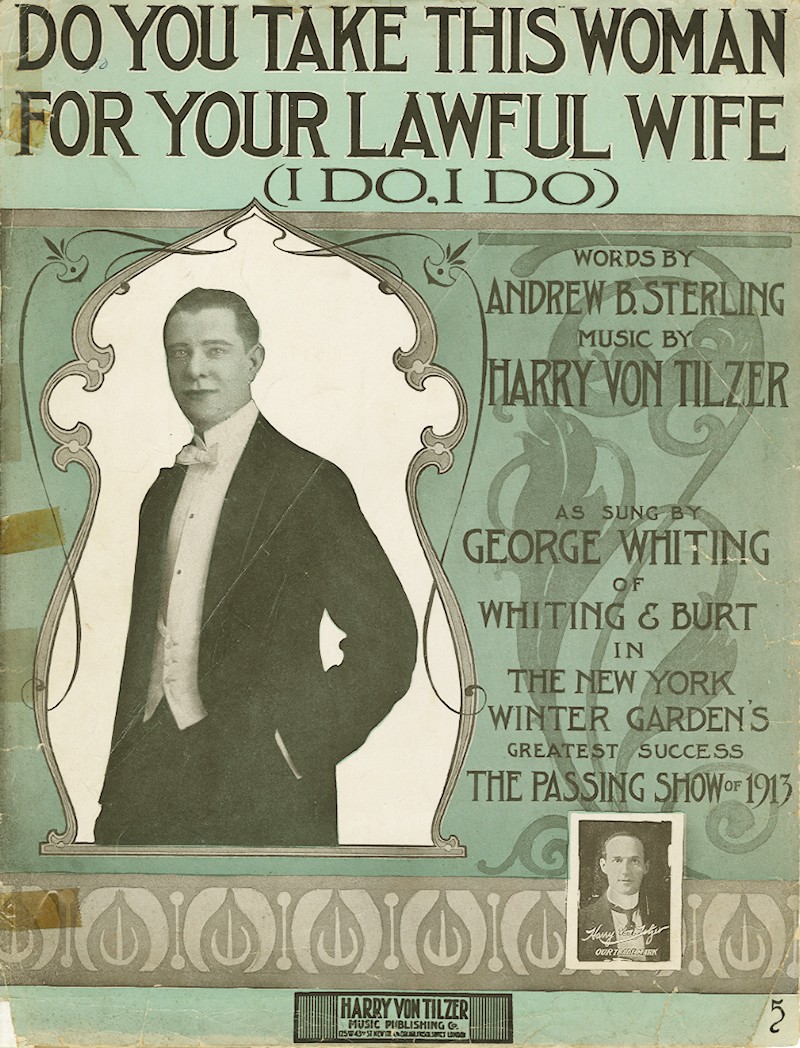 DO YOU TAKE THIS WOMAN
FOR YOUR LAWFUL WIFE
(I DO, I DO)
WORDS BY
ANDREW B. STERLING
MUSIC BY
HARRY VON TILZER
AS SUNG BY
GEORGE WHITING
OF
WHITING & BURT
IN
THE NEW YORK
WINTER GARDEN'S
GREATEST SUCCESS
THE PASSING SHOW OF 1913
Harry Von Tilzer
OUR TRADE MARK
HARRY VON TILZER
MUSIC PUBLISHING Co.
125 W 43RD ST NEW YORK
5